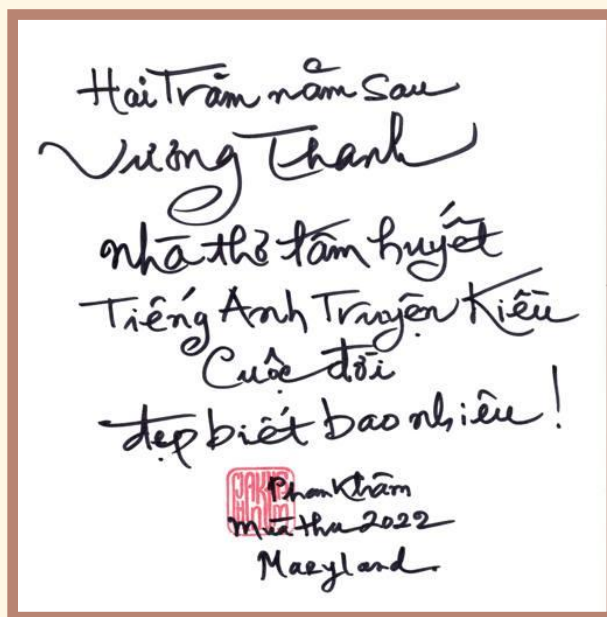 Hai Trăm năm sau
Vương Thanh
nhà thơ tâm huyết
Tiếng Anh Truyện Kiều
Cuộc đời
đẹp biết bao nhiêu!
Phan Khâm
Mùa thu 2022
Maryland.